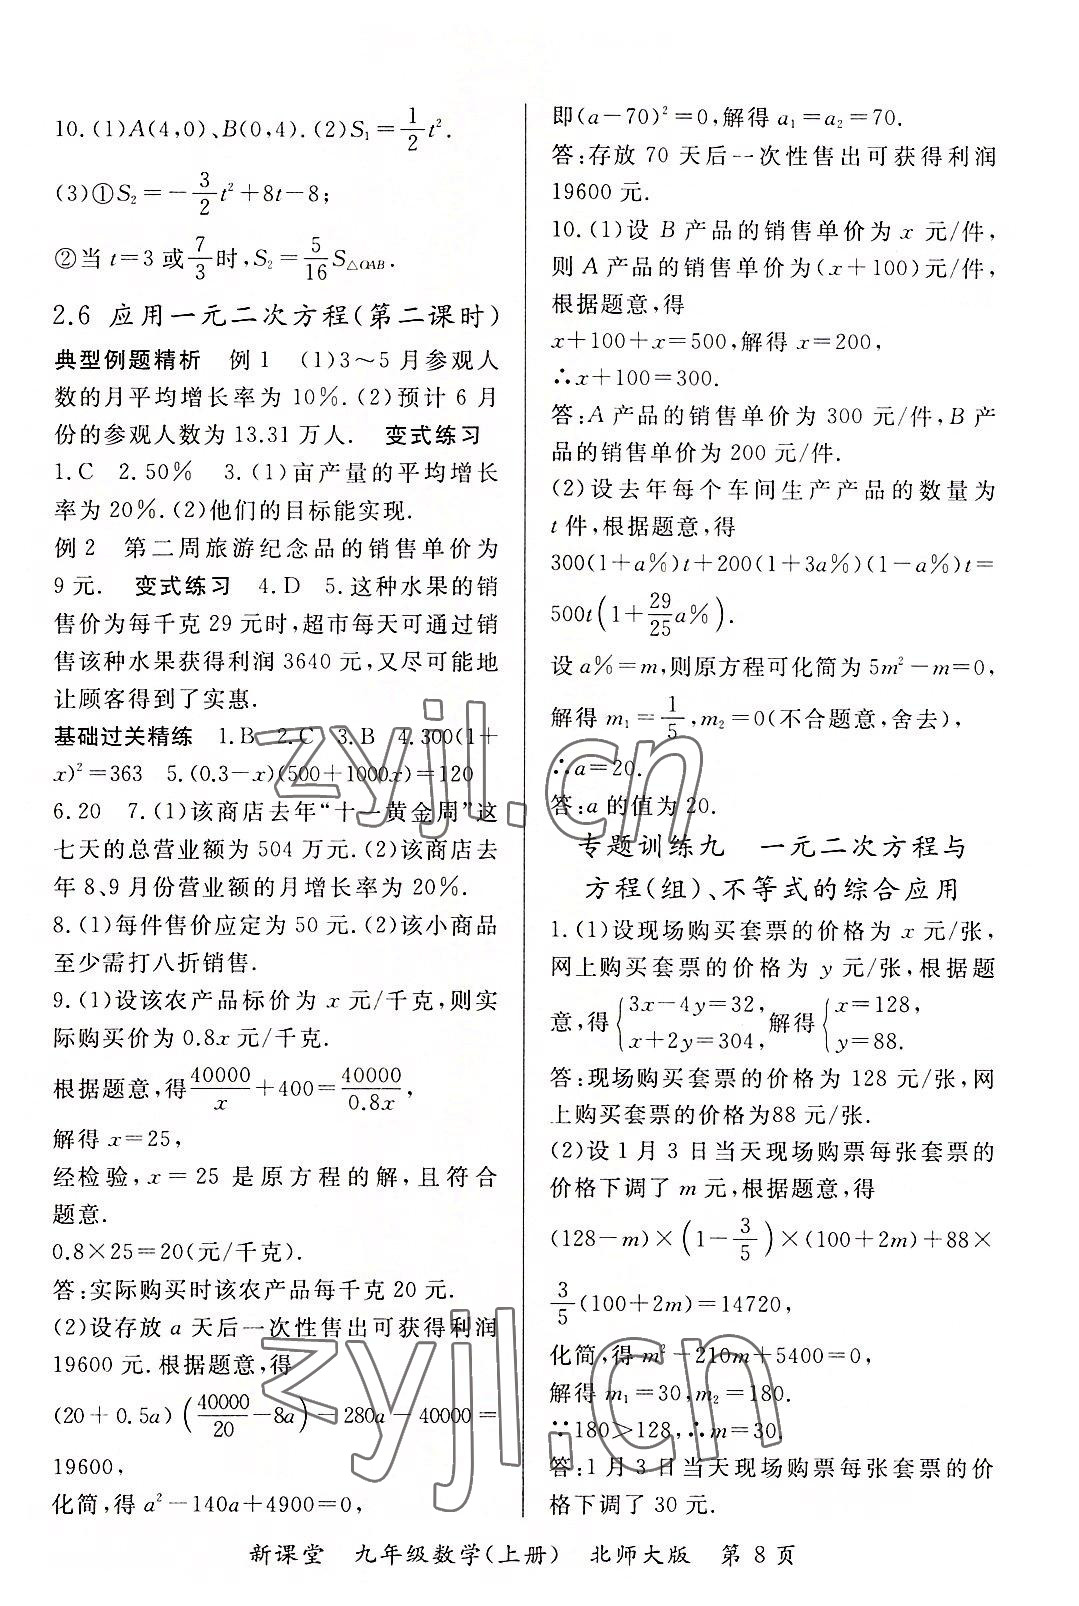 10.(1)A(4,0)、B(0,4).(2)S₁=1/2 t².
(3)①S₂=-3/2 t²+8t-8;
②当 t=3 或 7/3 时,S₂=5/16 S△OAB.
2.6 应用一元二次方程(第二课时)
典型例题精析 例1 (1)3～5月参观人
数的月平均增长率为 10%.(2)预计 6 月
份的参观人数为 13.31 万人. 变式练习
1.C 2.50% 3.(1)亩产量的平均增长
率为 20%.(2)他们的目标能实现.
例2 第二周旅游纪念品的销售单价为
9元. 变式练习 4.D 5.这种水果的销
售价为每千克 29 元时,超市每天可通过销
售该种水果获得利润 3640 元,又尽可能地
让顾客得到了实惠.
基础过关精练 1.B 2.C 3.B 4.300(1+
x)²=363 5.(0.3-x)(500+1000x)=120
6.20 7.(1)该商店去年“十一黄金周”这
七天的总营业额为 504 万元.(2)该商店去
年 8、9 月份营业额的月增长率为 20%.
8.(1)每件售价应定为 50 元.(2)该小商品
至少需打八折销售.
9.(1)设该农产品标价为 x 元/千克,则实
际购买价为 0.8x 元/千克.
根据题意,得 40000/x+400=40000/0.8x,
解得 x=25,
经检验,x=25 是原方程的解,且符合
题意.
0.8×25=20(元/千克).
答:实际购买时该农产品每千克 20 元.
(2)设存放 a 天后一次性售出可获得利润
19600 元.根据题意,得
(20+0.5a)(40000/20-8a)-280a-40000=
19600,
化简,得 a²-140a+4900=0,
即(a-70)²=0,解得 a₁=a₂=70.
答:存放 70 天后一次性售出可获得利润
19600 元.
10.(1)设 B 产品的销售单价为 x 元/件,
则 A 产品的销售单价为(x+100)元/件,
根据题意,得
x+100+x=500,解得 x=200,
∴x+100=300.
答:A 产品的销售单价为 300 元/件,B 产
品的销售单价为 200 元/件.
(2)设去年每个车间生产产品的数量为
t件,根据题意,得
300(1+a%)t+200(1+3a%)(1-a%)t=
500t(1+29/25 a%).
设 a%=m,则原方程可化简为 5m²-m=0,
解得 m₁=1/5,m₂=0(不合题意,舍去),
∴a=20.
答:a 的值为 20.
专题训练九 一元二次方程与
方程(组)、不等式的综合应用
1.(1)设现场购买套票的价格为 x 元/张,
网上购买套票的价格为 y 元/张,根据题
意,得{3x-4y=32, x+2y=304, 解得{x=128, y=88.
答:现场购买套票的价格为 128 元/张,网
上购买套票的价格为88 元/张.
(2)设 1 月 3 日当天现场购票每张套票的
价格下调了 m 元,根据题意,得
(128-m)×(1-3/5)×(100+2m)+88×
3/5(100+2m)=14720,
化简,得 m²-210m+5400=0,
解得 m₁=30,m₂=180.
∵180>128,∴m=30.
答:1 月 3 日当天现场购票每张套票的价
格下调了 30 元.
zyjl.cn
zyjl.cn
新课堂 九年级数学(上册) 北师大版 第 8 页